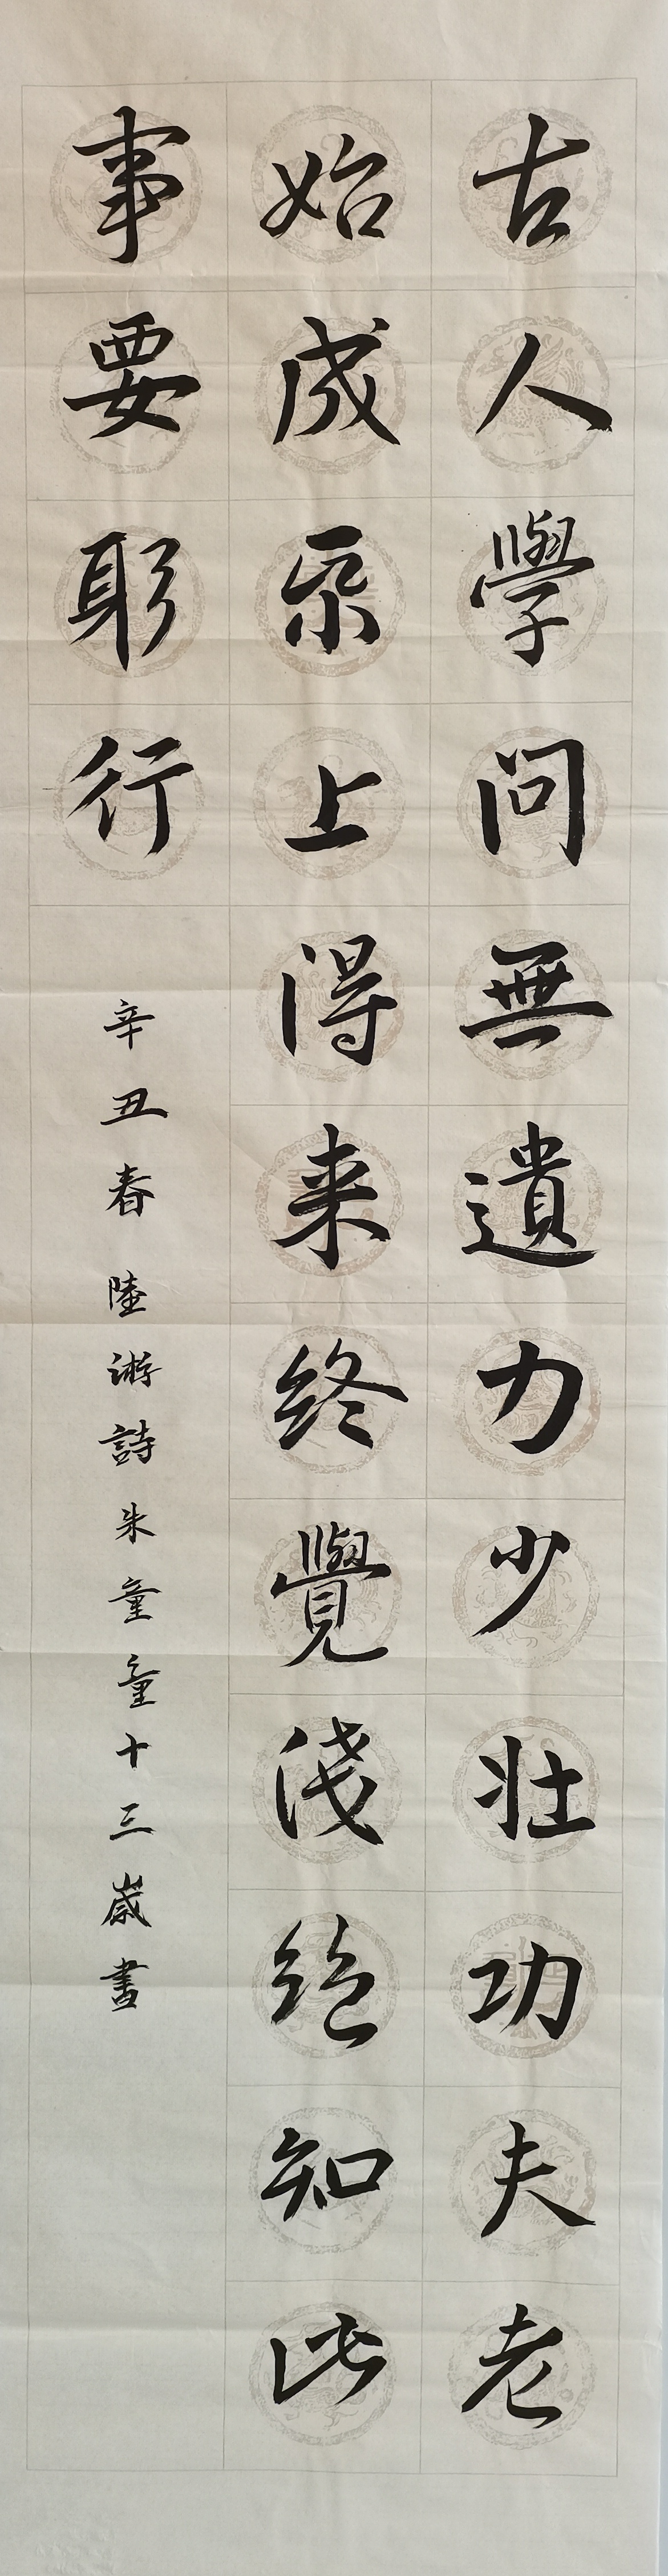 古人學問無遺力少壮功夫老
始成帋上得来终覺浅绝知此
事要躬行
辛丑春陸游詩朱童童十三歲書